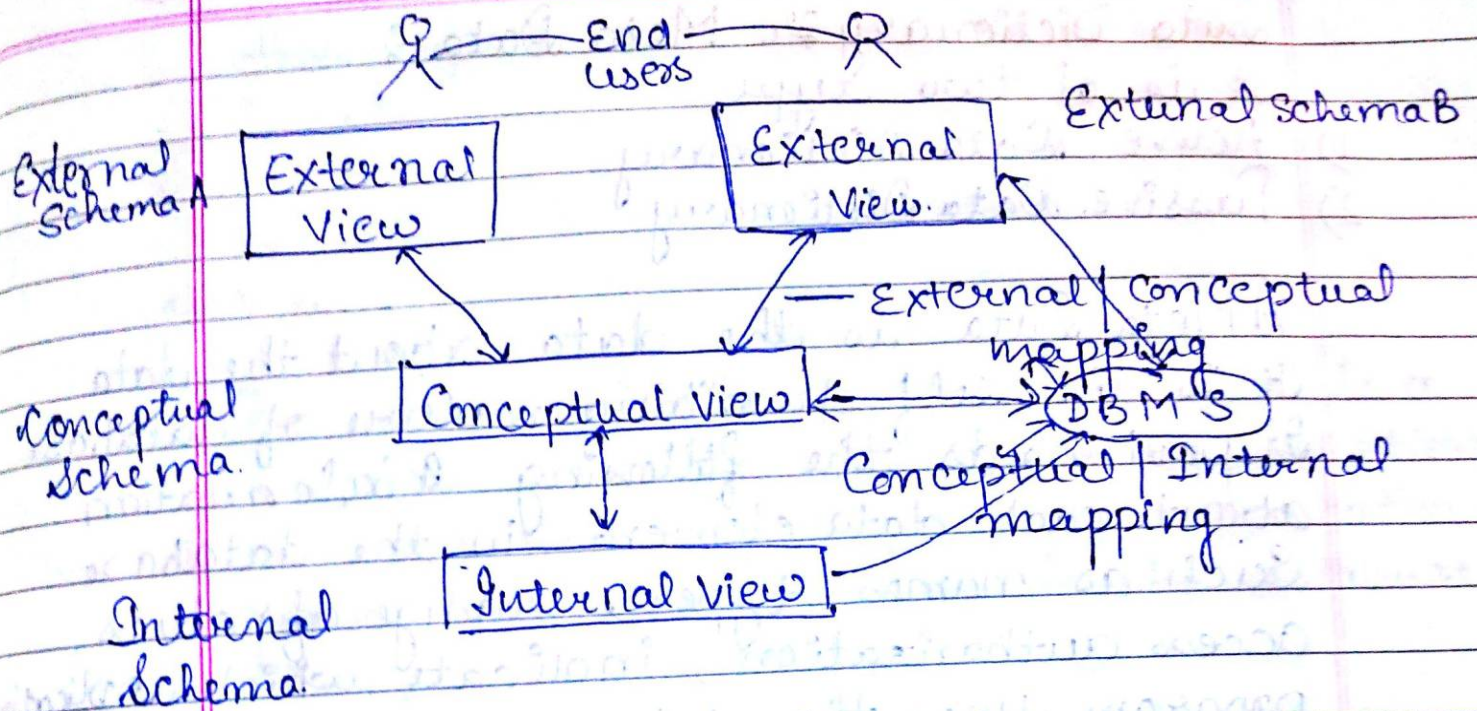 End
users
External Schema B
External
Schema A
External
View
External
View.
External | Conceptual
mapping
Conceptual
Schema.
Conceptual View
DBMS
Conceptual | Internal
mapping
Internal View
Internal
Schema.